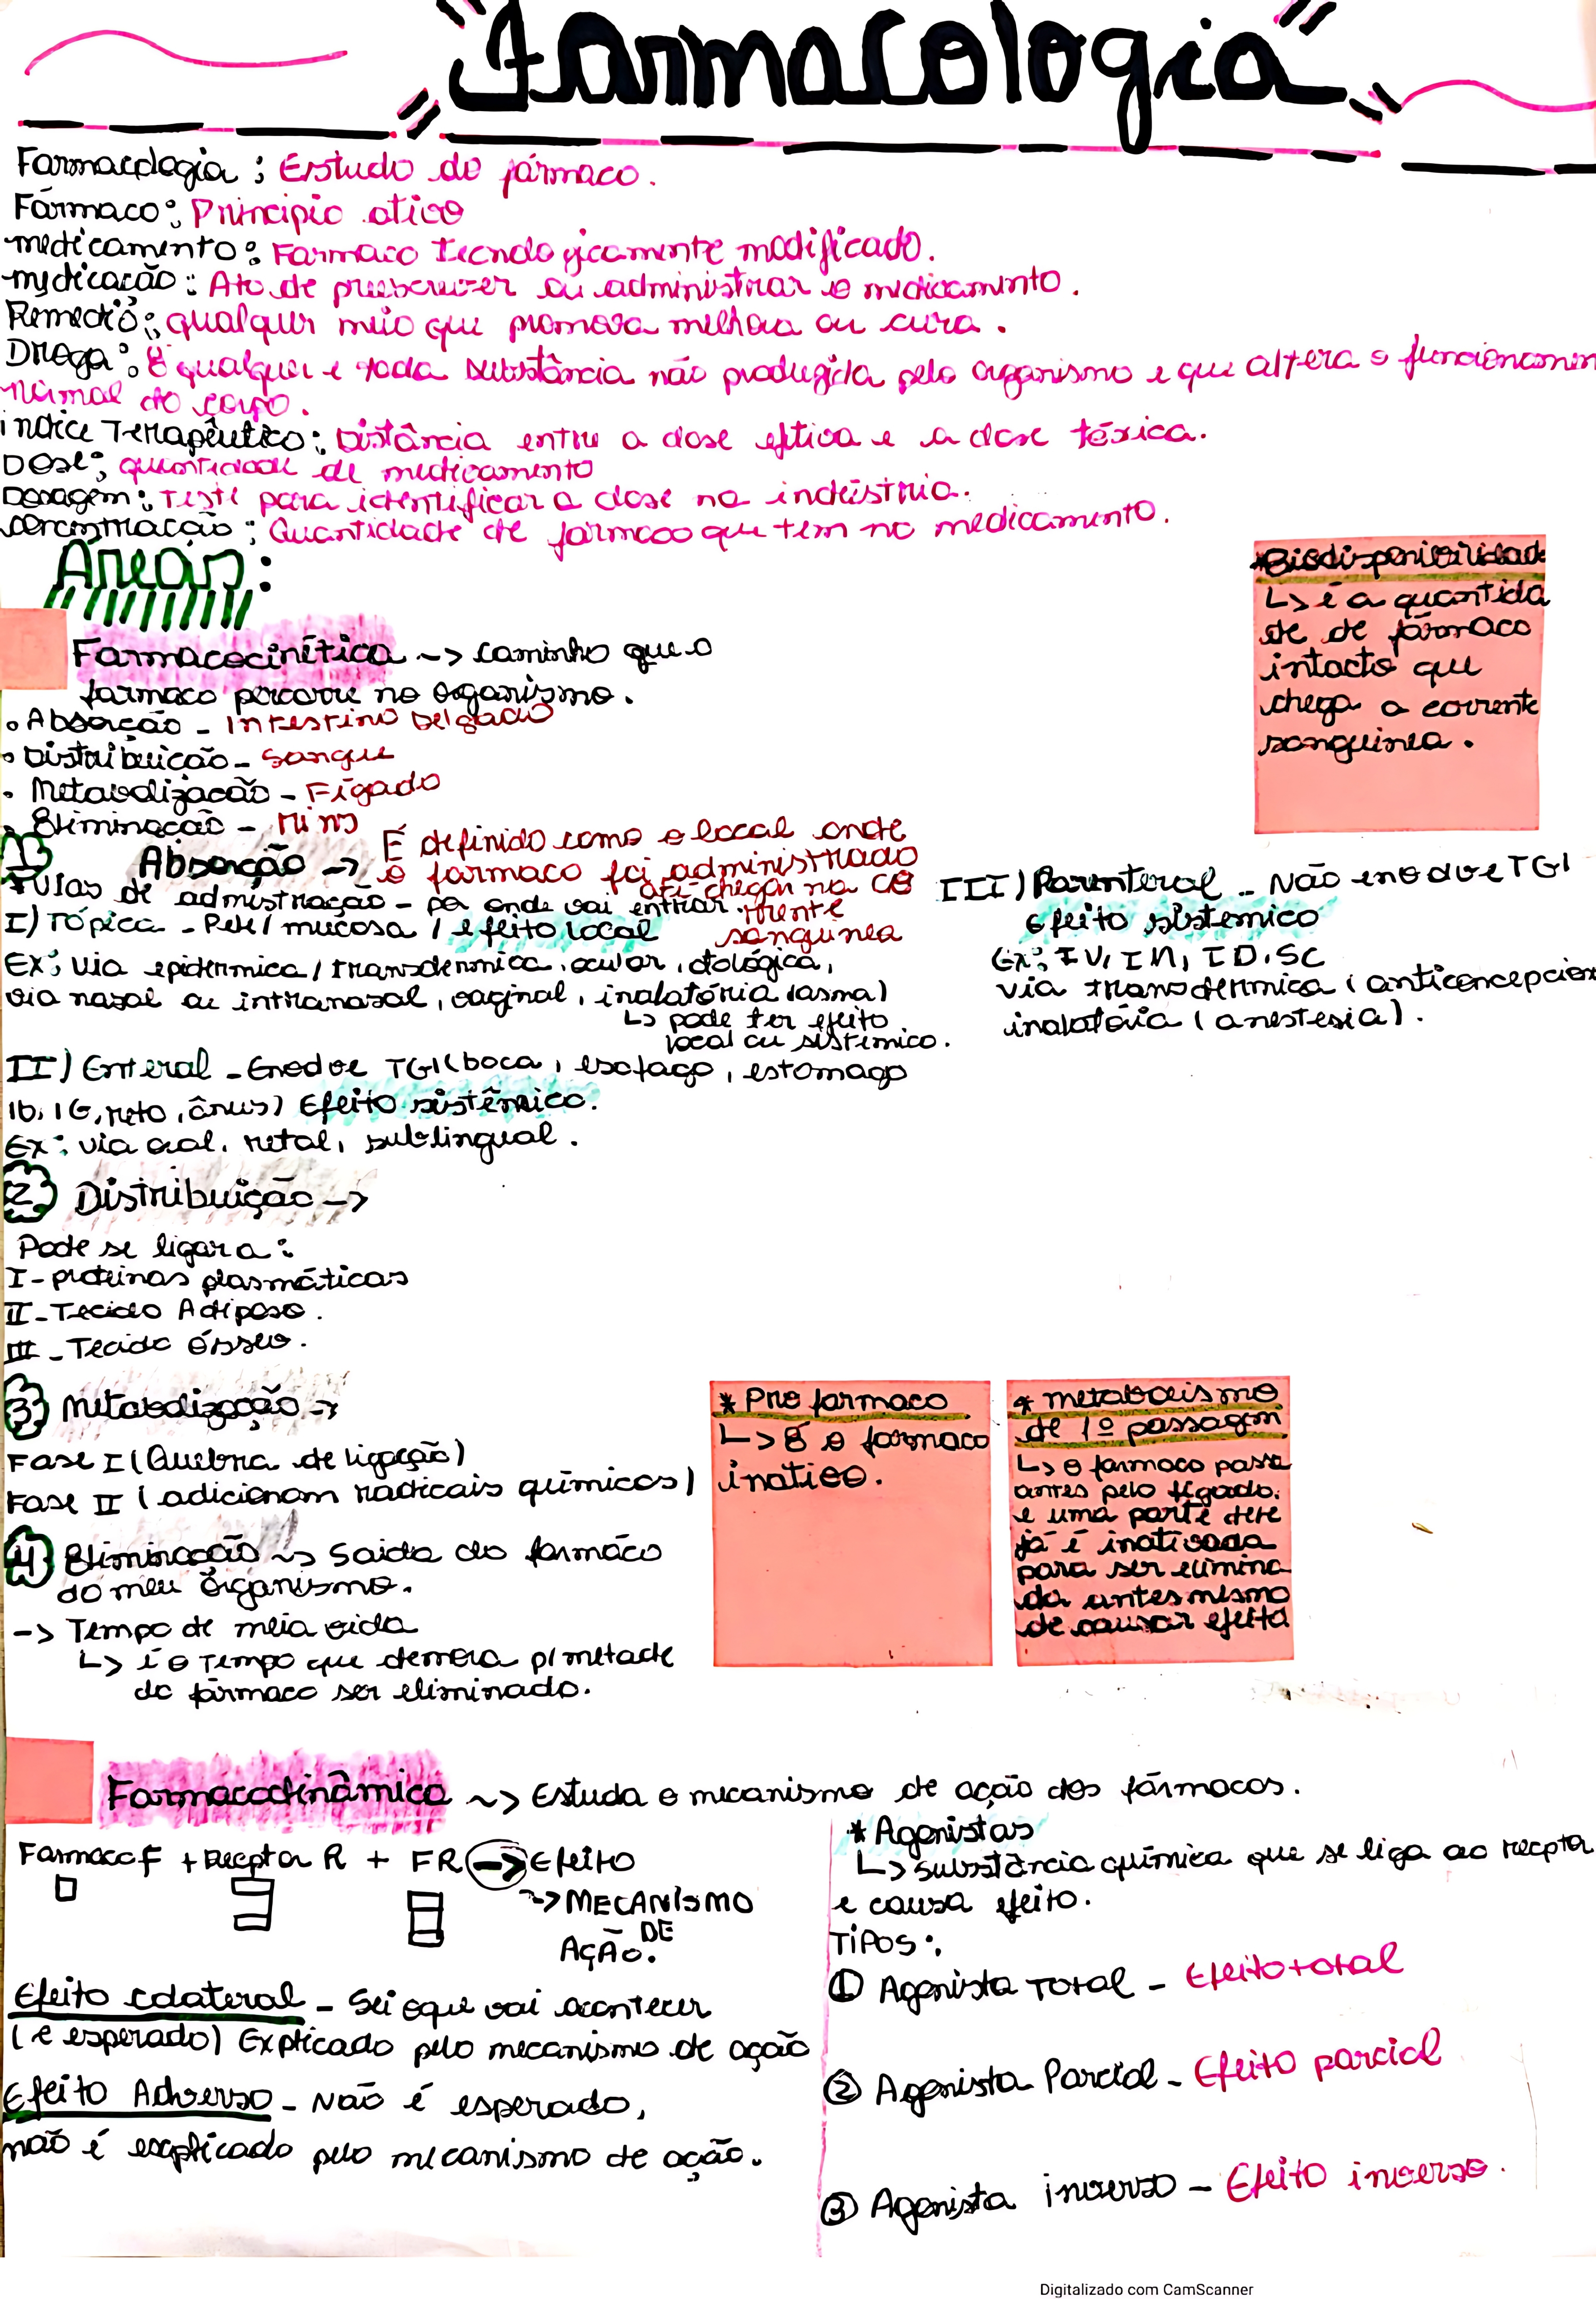 "Farmacologia"
Farmacologia: Estudo do fármaco.
Fármaco: Principio ativo
medicamento: Farmaco tecnologicamente modificado.
medicação: Ato de prescrever ou administrar o medicamento.
Remedio: qualquer meio que promova melhora ou cura.
Droga: É qualquer e toda substância não produzida pelo organismo e que altera o funcionamen
normal do corpo.
indice Terapêutico: Distância entre a dose efetiva e a dose tóxica.
Dose: quantidade de medicamento
Dosagem: Teste para identificar a dose na indústria.
concentração: Quantidade de fármaco que tem no medicamento.
Áreas:
*Biodisponibilidade
↳ é a quantida
de de fármaco
intacto que
chega a corrente
sanguinea.
Farmacocinética ~> caminho que o
farmaco percorre no organismo.
• Absorção - Intestino Delgado
• Distribuição - Sangue
• Metabolização - Fígado
• Eliminação - rins
1) Absorção -> É definido como o local onde
o farmaco foi administrado
até chegar na co
rrente
sanguinea
* Vias de admistração - por onde vai entrar.
I) Tópica - Pele/mucosa / efeito local
Ex: via epidermica/transdermica, ocular, otológica,
via nasal ou intranasal, vaginal, inalatória (asma)
↳ pode ter efeito
local ou sistêmico.
II) Enteral - Envolve TGI (boca, esofago, estomago
ID, IG, reto, ânus) Efeito sistêmico.
Ex: via oral, retal, sublingual.
III) Parenteral - Não envolve TGI
Efeito sistemico
Ex: IV, IM, ID, SC
via transdermica (anticoncepcion
inalatória (anestesia).
2) Distribuição ->
Pode se ligar a:
I - proteinas plasmáticas
II - Tecido Adiposo.
III - Tecido ósseo.
3) Metabolização ->
Fase I (Quebra de ligação)
Fase II (adicionam radicais químicos)
* Pro farmaco
↳ É o farmaco
inativo.
* metabolismo
de 1º passagem
↳ o farmaco passa
antes pelo fígado.
e uma parte dele
já é inativada
para ser elimina
da antes mesmo
de causar efeito
4) Eliminação ~> Saida do farmáco
do meu órganismo.
-> Tempo de meia vida
↳ é o Tempo que demora p/ metade
do fármaco ser eliminado.
Farmacodinâmica ~> Estuda o mecanismo de ação dos fármacos.
Farmaco F + Receptor R + FR -> Efeito
~> MECANÍSMO
DE
AÇÃO.
Efeito colateral - Sei oque vai acontecer
(é esperado) Explicado pelo mecanismo de ação
Efeito Adverso - Não é esperado,
não é explicado pelo mecanismo de ação.
* Agonistas
↳ substância química que se liga ao receptor
e causa efeito.
TIPOS:
① Agonista Total - Efeito total
② Agonista Parcial - Efeito parcial
③ Agonista inverso - Efeito inverso.
Digitalizado com CamScanner